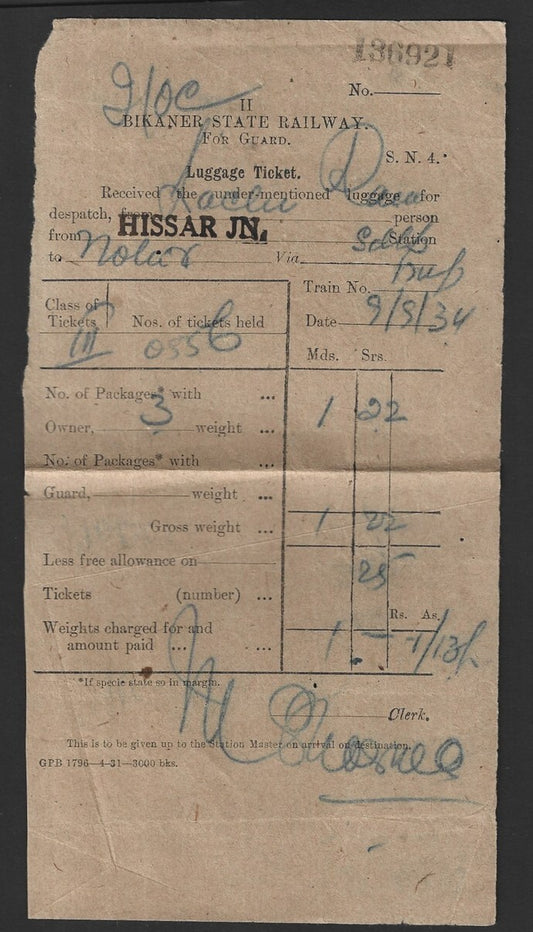 136921
No.
II
BIKANER STATE RAILWAY.
FOR GUARD.
S. N. 4.
Luggage Ticket.
Received the under-mentioned luggage for
despatch, from person
from HISSAR JN. Station
to Via
Train No.
Date 9/9/34
Class of
Tickets Nos. of tickets held
III 0556
Mds. Srs.
No. of Packages* with
3 1 22
Owner, weight ...
No. of Packages* with
Guard, weight ...
Gross weight ... 1 22
Less free allowance on
25
Tickets (number) ...
Rs. As.
Weights charged for and
amount paid ... ... 1 — 1/13/-
*If specie state so in margin.
Clerk.
This is to be given up to the Station Master on arrival on destination.
GPB 1796—4-31—3000 bks.